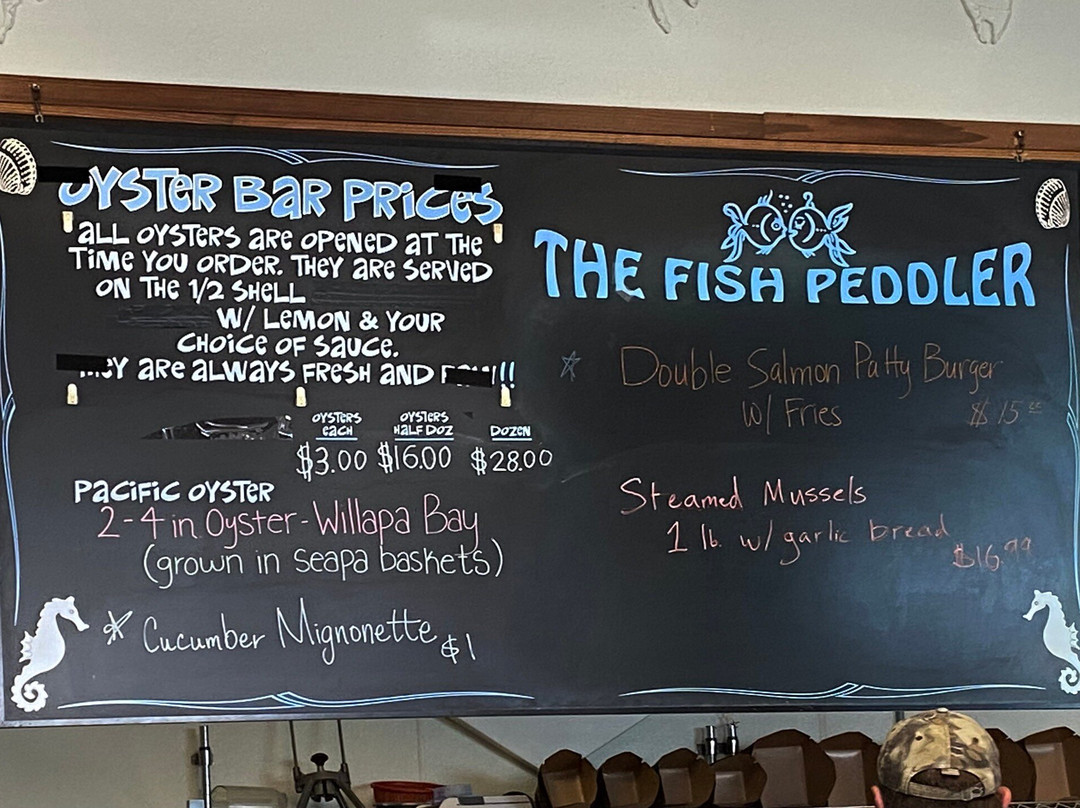 OYSTER BAR PRICES
ALL OYSTERS ARE OPENED AT THE
TIME YOU ORDER. THEY ARE SERVED
ON THE 1/2 SHELL
W/ LEMON & YOUR
CHOICE OF SAUCE.
THEY ARE ALWAYS FRESH AND !!
OYSTERS EACH
OYSTERS HALF DOZ
DOZEN
$3.00 $16.00 $28.00
PACIFIC OYSTER
2-4 in Oyster - Willapa Bay
(grown in seapa baskets)
* Cucumber Mignonette $1
THE FISH PEDDLER
* Double Salmon Patty Burger
w/ Fries $15
Steamed Mussels
1 lb. w/ garlic bread
$16.99